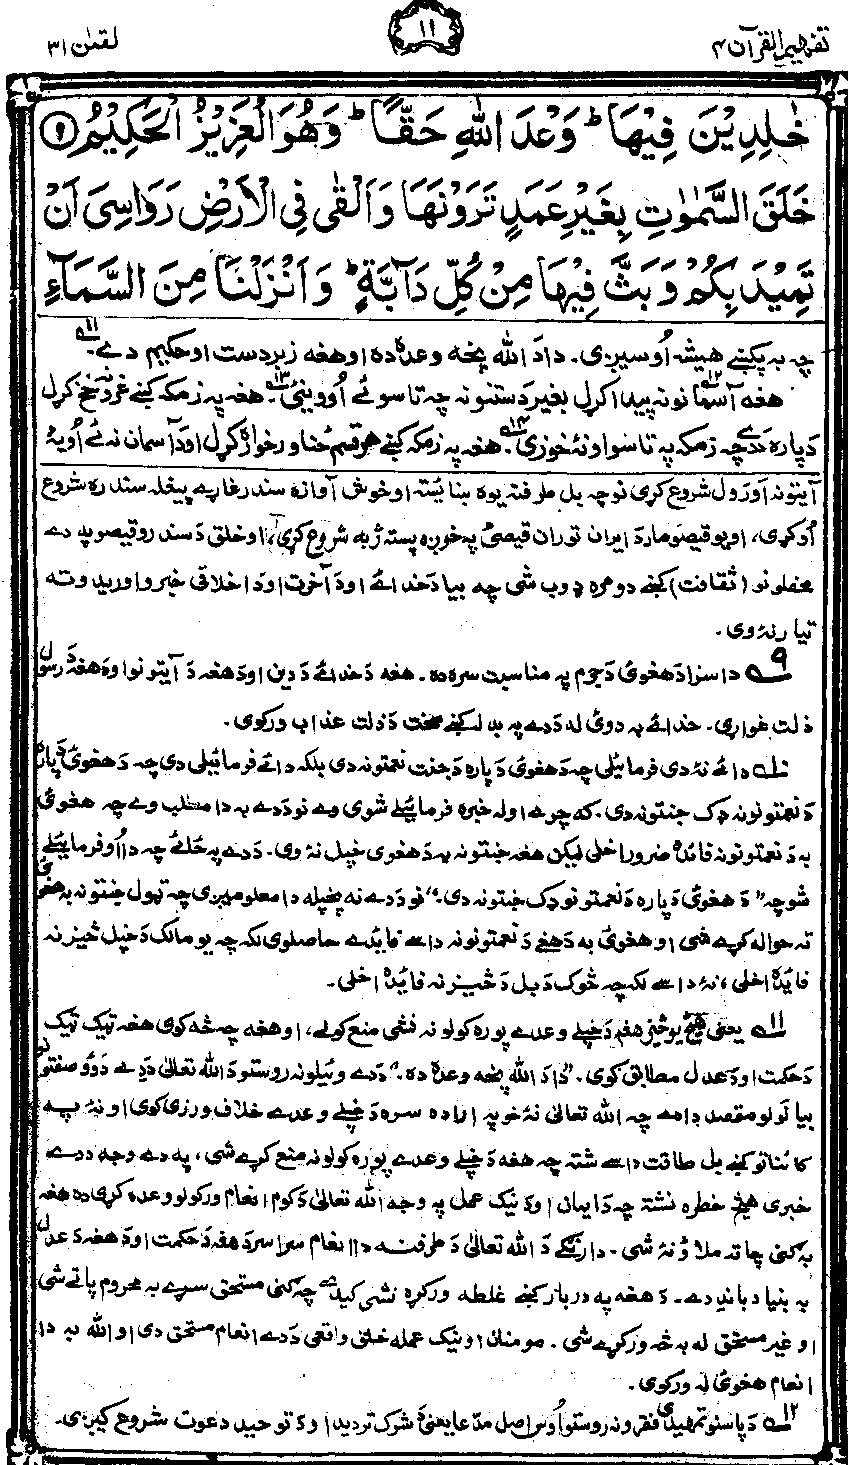 تفهيم القرآن ۴
۱۱
لقمٰن ۳۱
خٰلِدِيْنَ فِيْهَا ؕ وَعْدَ اللّٰهِ حَقًّا ؕ وَهُوَ الْعَزِيْزُ الْحَكِيْمُ ۹
خَلَقَ السَّمٰوٰتِ بِغَيْرِ عَمَدٍ تَرَوْنَهَا وَاَلْقٰى فِى الْاَرْضِ رَوَاسِىَ اَنْ
تَمِيْدَ بِكُمْ وَبَثَّ فِيْهَا مِنْ كُلِّ دَآبَّةٍ ؕ وَاَنْزَلْنَا مِنَ السَّمَآءِ
چه به پكښے هميشه اُوسيږى. دا دَ الله پخه وعده ده او هغه زبردست او حكيم دے. ۱۱
هغه آسمانونه پيدا كړل ۱۲ بغير دَ ستنو نه چه تاسو ئے اُووينئ ۱۳. هغه په زمكه كښے غرونه ښخ كړل
دَپاره دَدے چه زمكه په تاسو اونۀ خوزى ۱۴. هغه په زمكه كښے هر قسم ځناور خوارۀ كړل او دَ آسمان نه ئے اُوبۀ
آيتونه اَورول شروع كړى نو چه بل طرف ته يوه ښائسته او خوش آوازه سندرغاړے پيغله سندره شروع
اُوكړى، او يو قيصو مار دَ ايران توران قيصئ په خوږه پسته ژبه شروع كړى، او خلق دَ سندرو قيصو په دے
محفلونو (ثقافت) كښے دومره ډوب شى چه بيا دَ خدائے او دَ آخرت او دَ اخلاقى خبرو اوريدو ته
تيار نۀ وى.
۹ دا سزا دَ هغوئ دَ جرم په مناسبت سره ده. هغه دَ خدائے دَ دين او دَ هغه دَ آيتونو او دَ هغه دَ رسول
ذلت غواړى. خدائے به دوئ له دَدے په بدله كښے سخت دَ ذلت عذاب وركوى.
۱۰ دا ئے نۀ دى فرمائيلى چه دَ هغوئ دَپاره دَ جنت نعمتونه دى بلكه دا ئے فرمائيلى دى چه دَ هغوئ دَپاره
دَ نعمتونو نه ډك جنتونه دى. كه چرے اوله خبره فرمائيلے شوى وے نو دَدے به دا مطلب وے چه هغوئ
به دَ نعمتونو نه فائده ضرور اخلى ليكن هغه جنتونه به دَ هغوى خپل نۀ وى. دَدے په ځائے چه دا اُوفرمائيلے
شو چه "دَ هغوئ دَپاره دَ نعمتونو ډك جنتونه دى." نو دَدے نه پخپله دا معلوميږى چه ټول جنتونه به هغوئ
ته حواله كړے شى او هغوئ به دَ هغے دَ نعمتونو نه داسے فائدے حاصلوى لكه چه يو مالك دَ خپل څيز نه
فائده اخلى، نۀ داسے لكه چه څوك دَ بل دَ څيز نه فائده اخلى.
۱۱ يعنى هيڅ يو څيز هغه دَ خپلے وعدے پوره كولو نه نشى منع كولے، او هغه چه څه كوى هغه ټيك ټيك
دَ حكمت او دَ عدل مطابق كوى. "دا دَ الله پخه وعده ده." دَدے وئيلو نه روستو دَ الله تعالىٰ دَدے دَوو صفتونو
بيانولو مقصد دا دے چه الله تعالىٰ نۀ خو په اراده سره دَ خپلے وعدے خلاف ورزى كوى او نۀ په
كائناتو كښے بل طاقت داسے شته چه هغه دَ خپلے وعدے پوره كولو نه منع كړے شى، په دے وجه دَدے
خبرى هيڅ خطره نشته چه دَ ايمان او دَ نيك عمل په وجه الله تعالىٰ دَ كوم انعام وركولو وعده كړى ده هغه
به كنى چا ته ملاؤ نۀ شى. دا رنگے دَ الله تعالىٰ دَ طرف نه دا انعام سراسر دَ هغه دَ حكمت او دَ هغه دَ عدل
په بنياد باندے دے. دَ هغه په دربار كښے غلطه وركړه نشى كيدے چه كنى مستحق سړے به محروم پاتے شى
او غير مستحق له به څه وركړے شى. مومنان او نيك عمله خلق واقعى دَدے انعام مستحق دى او الله به دا
انعام هغوئ له وركوى.
۱۲ دَ پاسنو تمهيدى فقرو نه روستو اُوس اصل مدعا يعنى دَ شرك ترديد او دَ توحيد دعوت شروع كيږى.